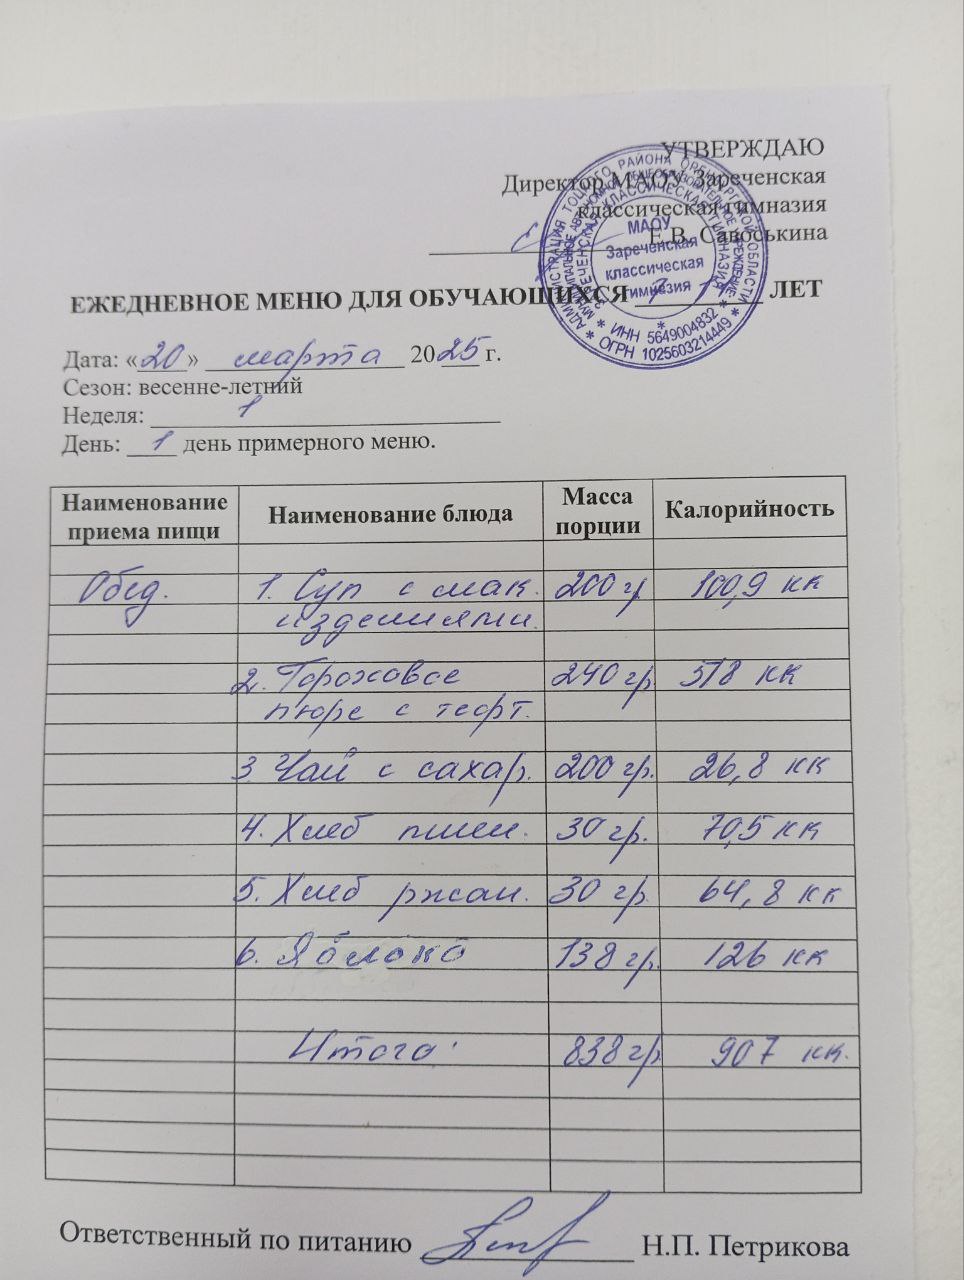 УТВЕРЖДАЮ
Директор МАОУ Зареченская
классическая гимназия
Е.В. Савоськина
АДМИНИСТРАЦИЯ ТОЦКОГО РАЙОНА ОРЕНБУРГСКОЙ ОБЛАСТИ
МУНИЦИПАЛЬНОЕ АВТОНОМНОЕ ОБЩЕОБРАЗОВАТЕЛЬНОЕ УЧРЕЖДЕНИЕ
ЗАРЕЧЕНСКАЯ КЛАССИЧЕСКАЯ ГИМНАЗИЯ
МАОУ
Зареченская
классическая
гимназия
* ИНН 5649004832 *
* ОГРН 1025603214449 *
ЕЖЕДНЕВНОЕ МЕНЮ ДЛЯ ОБУЧАЮЩИХСЯ 7-11 ЛЕТ
Дата: «20» марта 2025 г.
Сезон: весенне-летний
Неделя: 1
День: 1 день примерного меню.
Наименование приема пищи Наименование блюда Масса порции Калорийность
Обед. 1. Суп с мак. 200 гр 100,9 кк
изделиями.
2. Гороховое 240 гр. 518 кк
пюре с тефт.
3. Чай с сахар. 200 гр. 26,8 кк
4. Хлеб пшен. 30 гр. 70,5 кк
5. Хлеб ржан. 30 гр. 64,8 кк
6. Яблоко 138 гр. 126 кк
Итого: 838 гр. 907 кк.
Ответственный по питанию Н.П. Петрикова